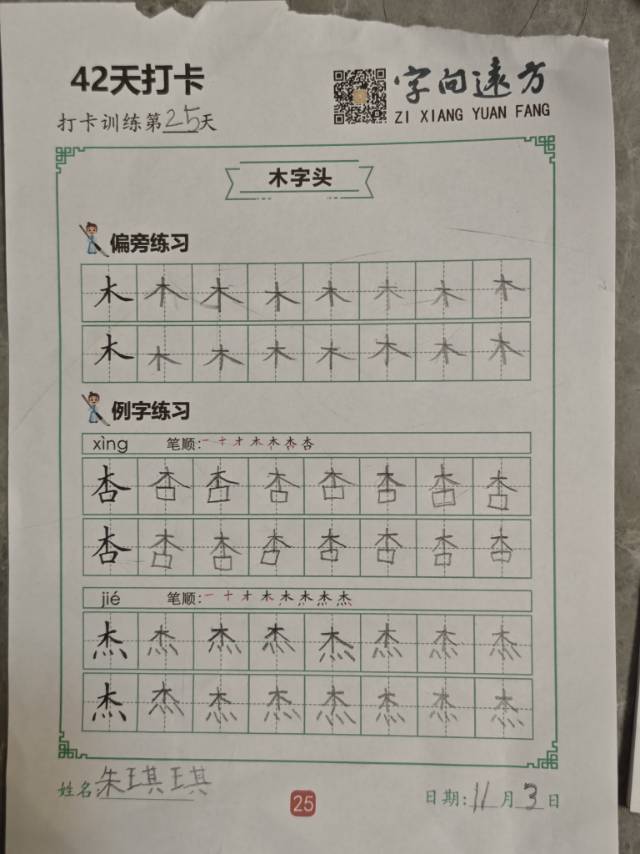 42天打卡
字向远方
ZI XIANG YUAN FANG
打卡训练第25天
木字头
偏旁练习
木 木 木 木 木 木 木 木
木 木 木 木 木 木 木 木
例字练习
xìng 笔顺: 一 十 才 木 木 杏 杏
杏 杏 杏 杏 杏 杏 杏 杏
杏 杏 杏 杏 杏 杏 杏 杏
jié 笔顺: 一 十 才 木 木 杰 杰 杰
杰 杰 杰 杰 杰 杰 杰 杰
杰 杰 杰 杰 杰 杰 杰 杰
姓名:朱琪琪
25
日期:11月3日